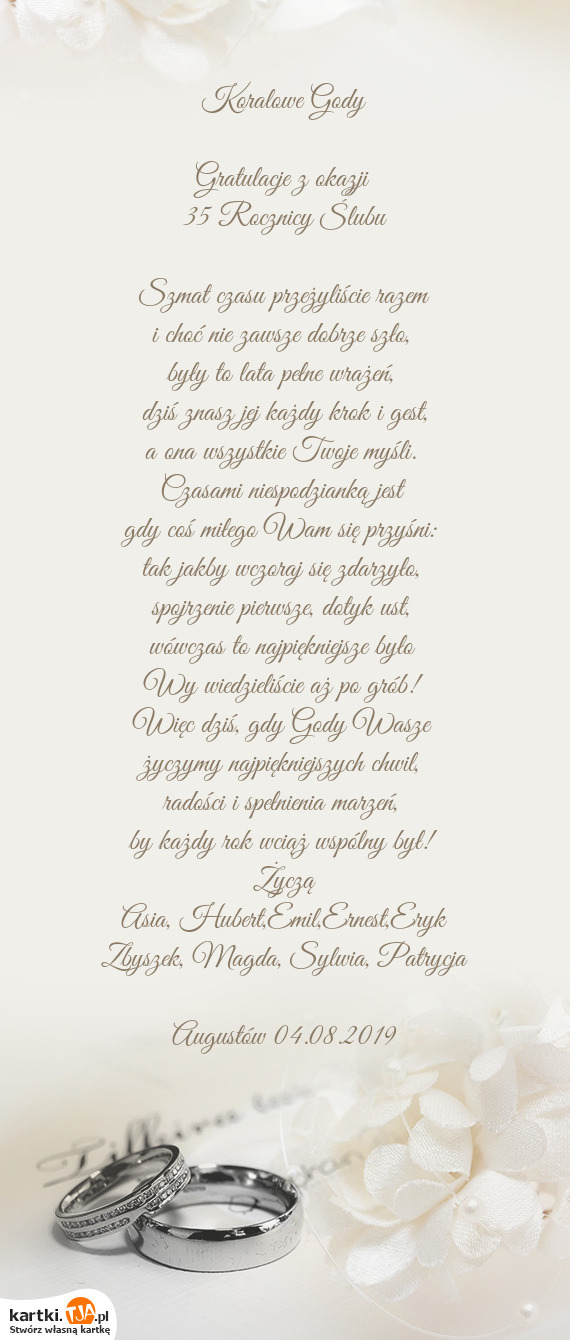 Koralowe Gody
Gratulacje z okazji
35 Rocznicy Ślubu
Szmat czasu przeżyliście razem
i choć nie zawsze dobrze szło,
były to lata pełne wrażeń,
dziś znasz jej każdy krok i gest,
a ona wszystkie Twoje myśli.
Czasami niespodzianką jest
gdy coś miłego Wam się przyśni:
tak jakby wczoraj się zdarzyło,
spojrzenie pierwsze, dotyk ust,
wówczas to najpiękniejsze było
Wy wiedzieliście aż po grób!
Więc dziś, gdy Gody Wasze
życzymy najpiękniejszych chwil,
radości i spełnienia marzeń,
by każdy rok wciąż wspólny był!
Życzą
Asia, Hubert,Emil,Ernest,Eryk
Zbyszek, Magda, Sylwia, Patrycja
Augustów 04.08.2019
kartki.TJA.pl
Stwórz własną kartkę